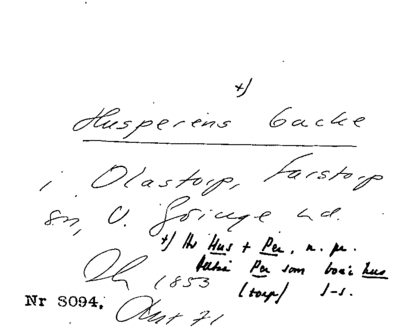 +)
Husperens backe
i Olastorp, Farstorp
sn, V. Göinge hd.
+) Av Hus + Per, n. pr.
Per som bott i hus
(torp) J-s.
1853
Nr 8094, Avst 71